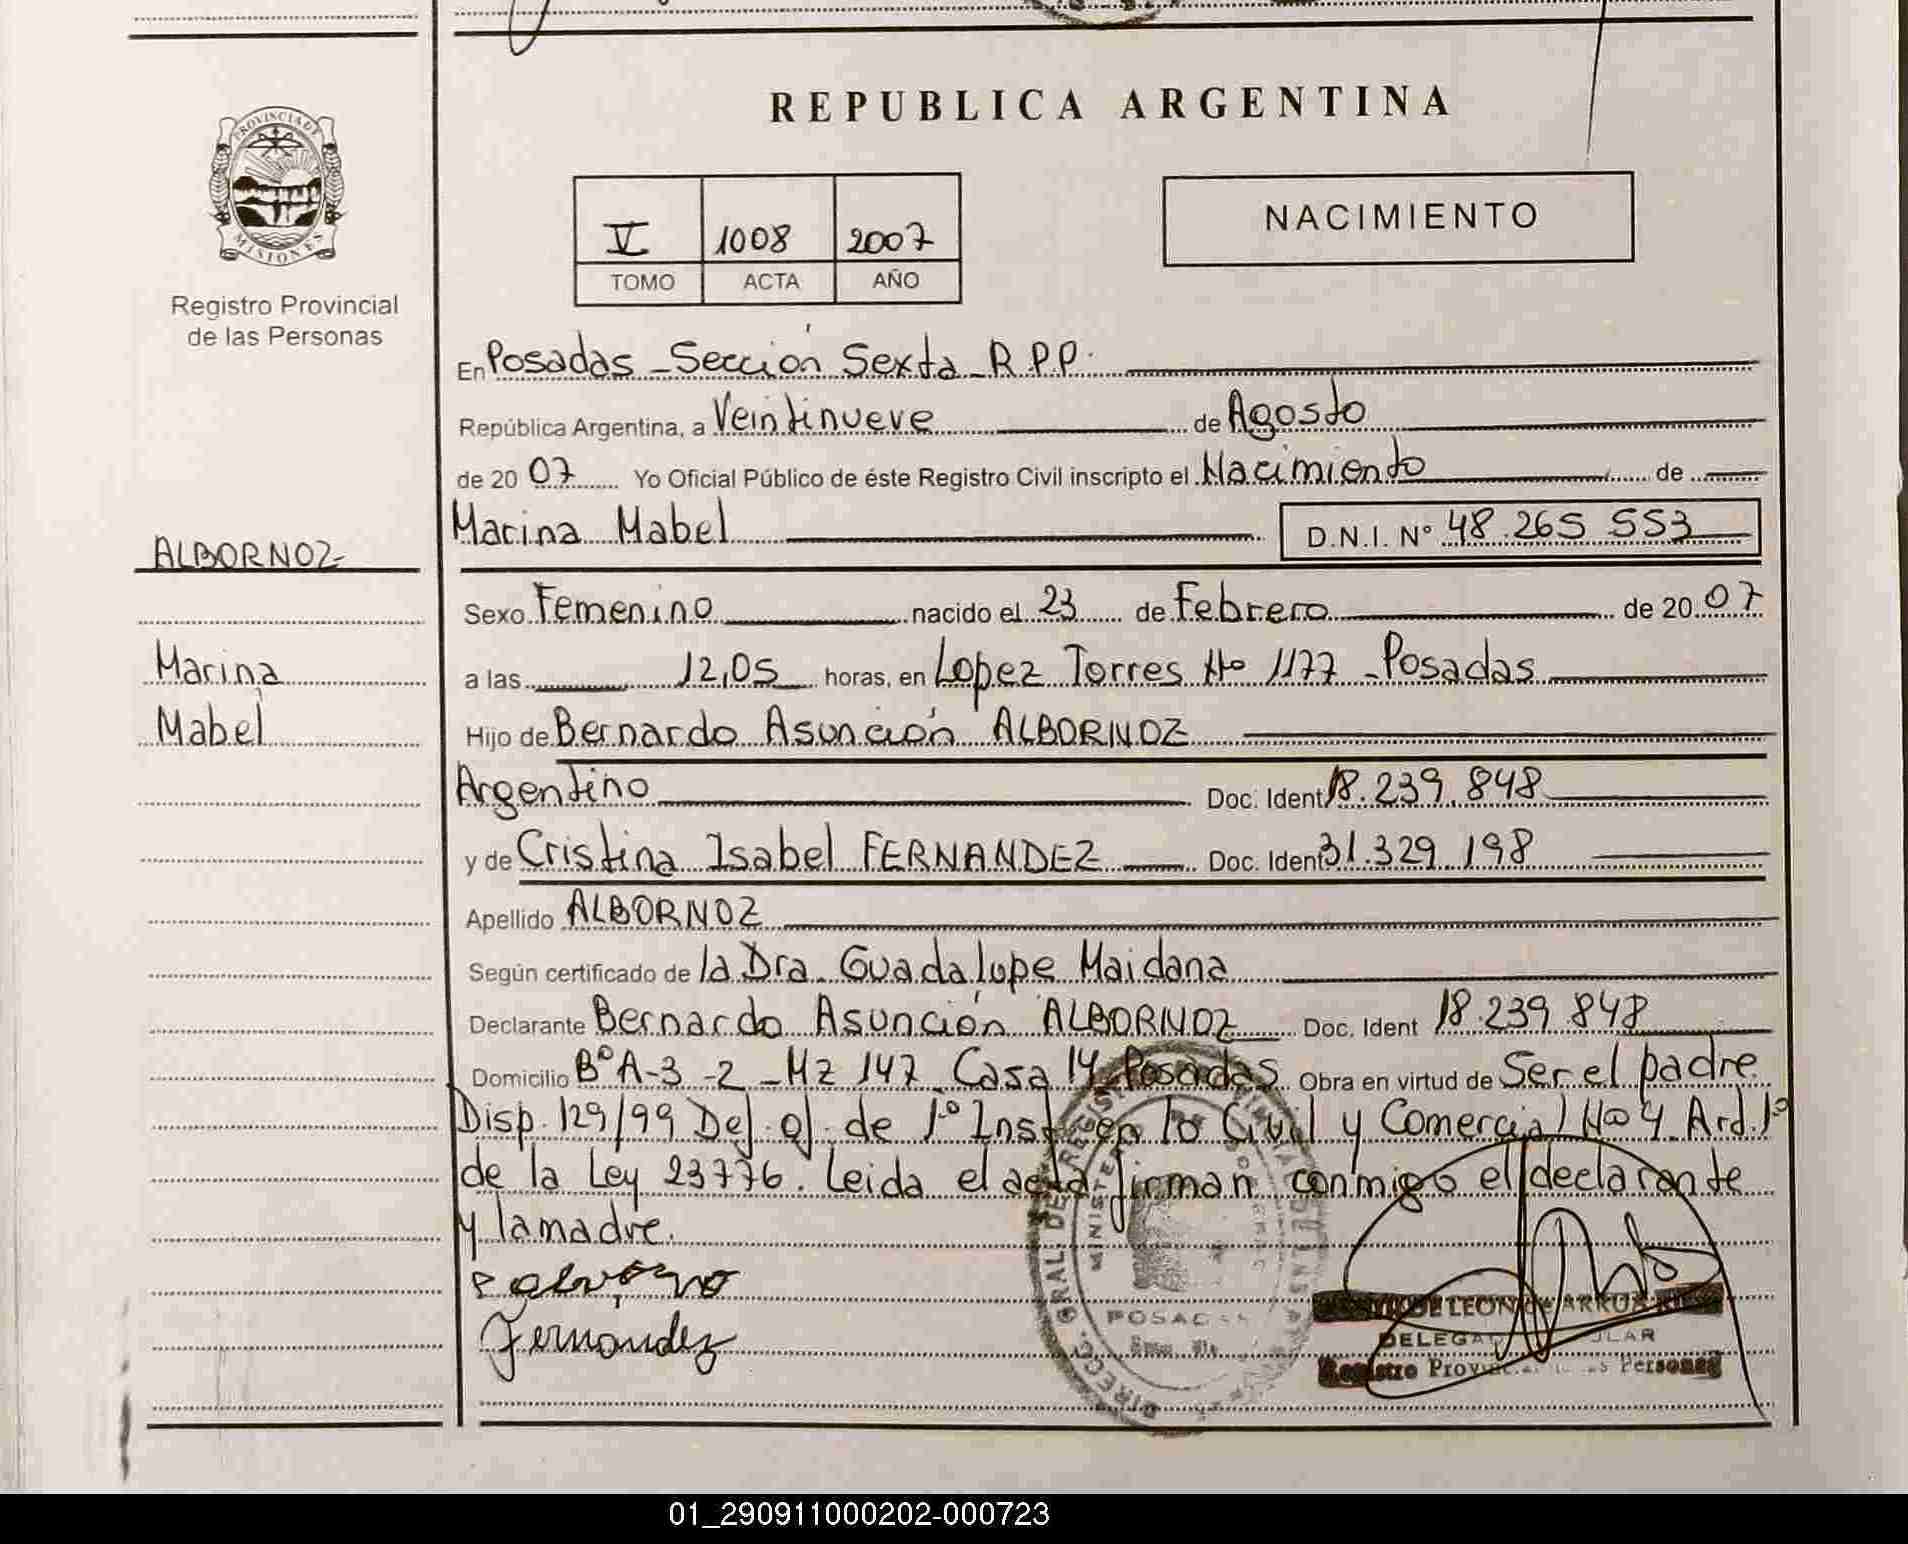 REPUBLICA ARGENTINA
PROVINCIA DE
MISIONES
Registro Provincial
de las Personas
V 1008 2007
TOMO ACTA AÑO
NACIMIENTO
En Posadas - Sección Sexta - R.P.P.
República Argentina, a Veintinueve de Agosto
de 20 07 Yo Oficial Público de éste Registro Civil inscripto el Nacimiento de
ALBORNOZ
Marina Mabel D.N.I. N° 48.265 553
Sexo Femenino nacido el 23 de Febrero de 20 07
Marina
a las 12,05 horas, en Lopez Torres Nº 1177 - Posadas
Mabel
Hijo de Bernardo Asunción ALBORNOZ
Argentino Doc. Ident 18.239.848
y de Cristina Isabel FERNANDEZ Doc. Ident 31.329 198
Apellido ALBORNOZ
Según certificado de la Dra. Guadalupe Maidana
Declarante Bernardo Asunción ALBORNOZ Doc. Ident 18.239 848
Domicilio Bº A-3-2 - Mz 147 Casa 14 Posadas Obra en virtud de Ser el padre
Disp. 129/99 Del de 1º Inst en lo Civil y Comercial Nº 4 Art. 1º
de la Ley 23776. Leida el acta firman conmigo el declarante
y la madre.
Fernandez
DIRECC. GRAL. DE REGIS
MINISTE
POSADAS
DE LEON de ARRUA
DELEGA ULAR
Registro Provincial Personas
01_290911000202-000723